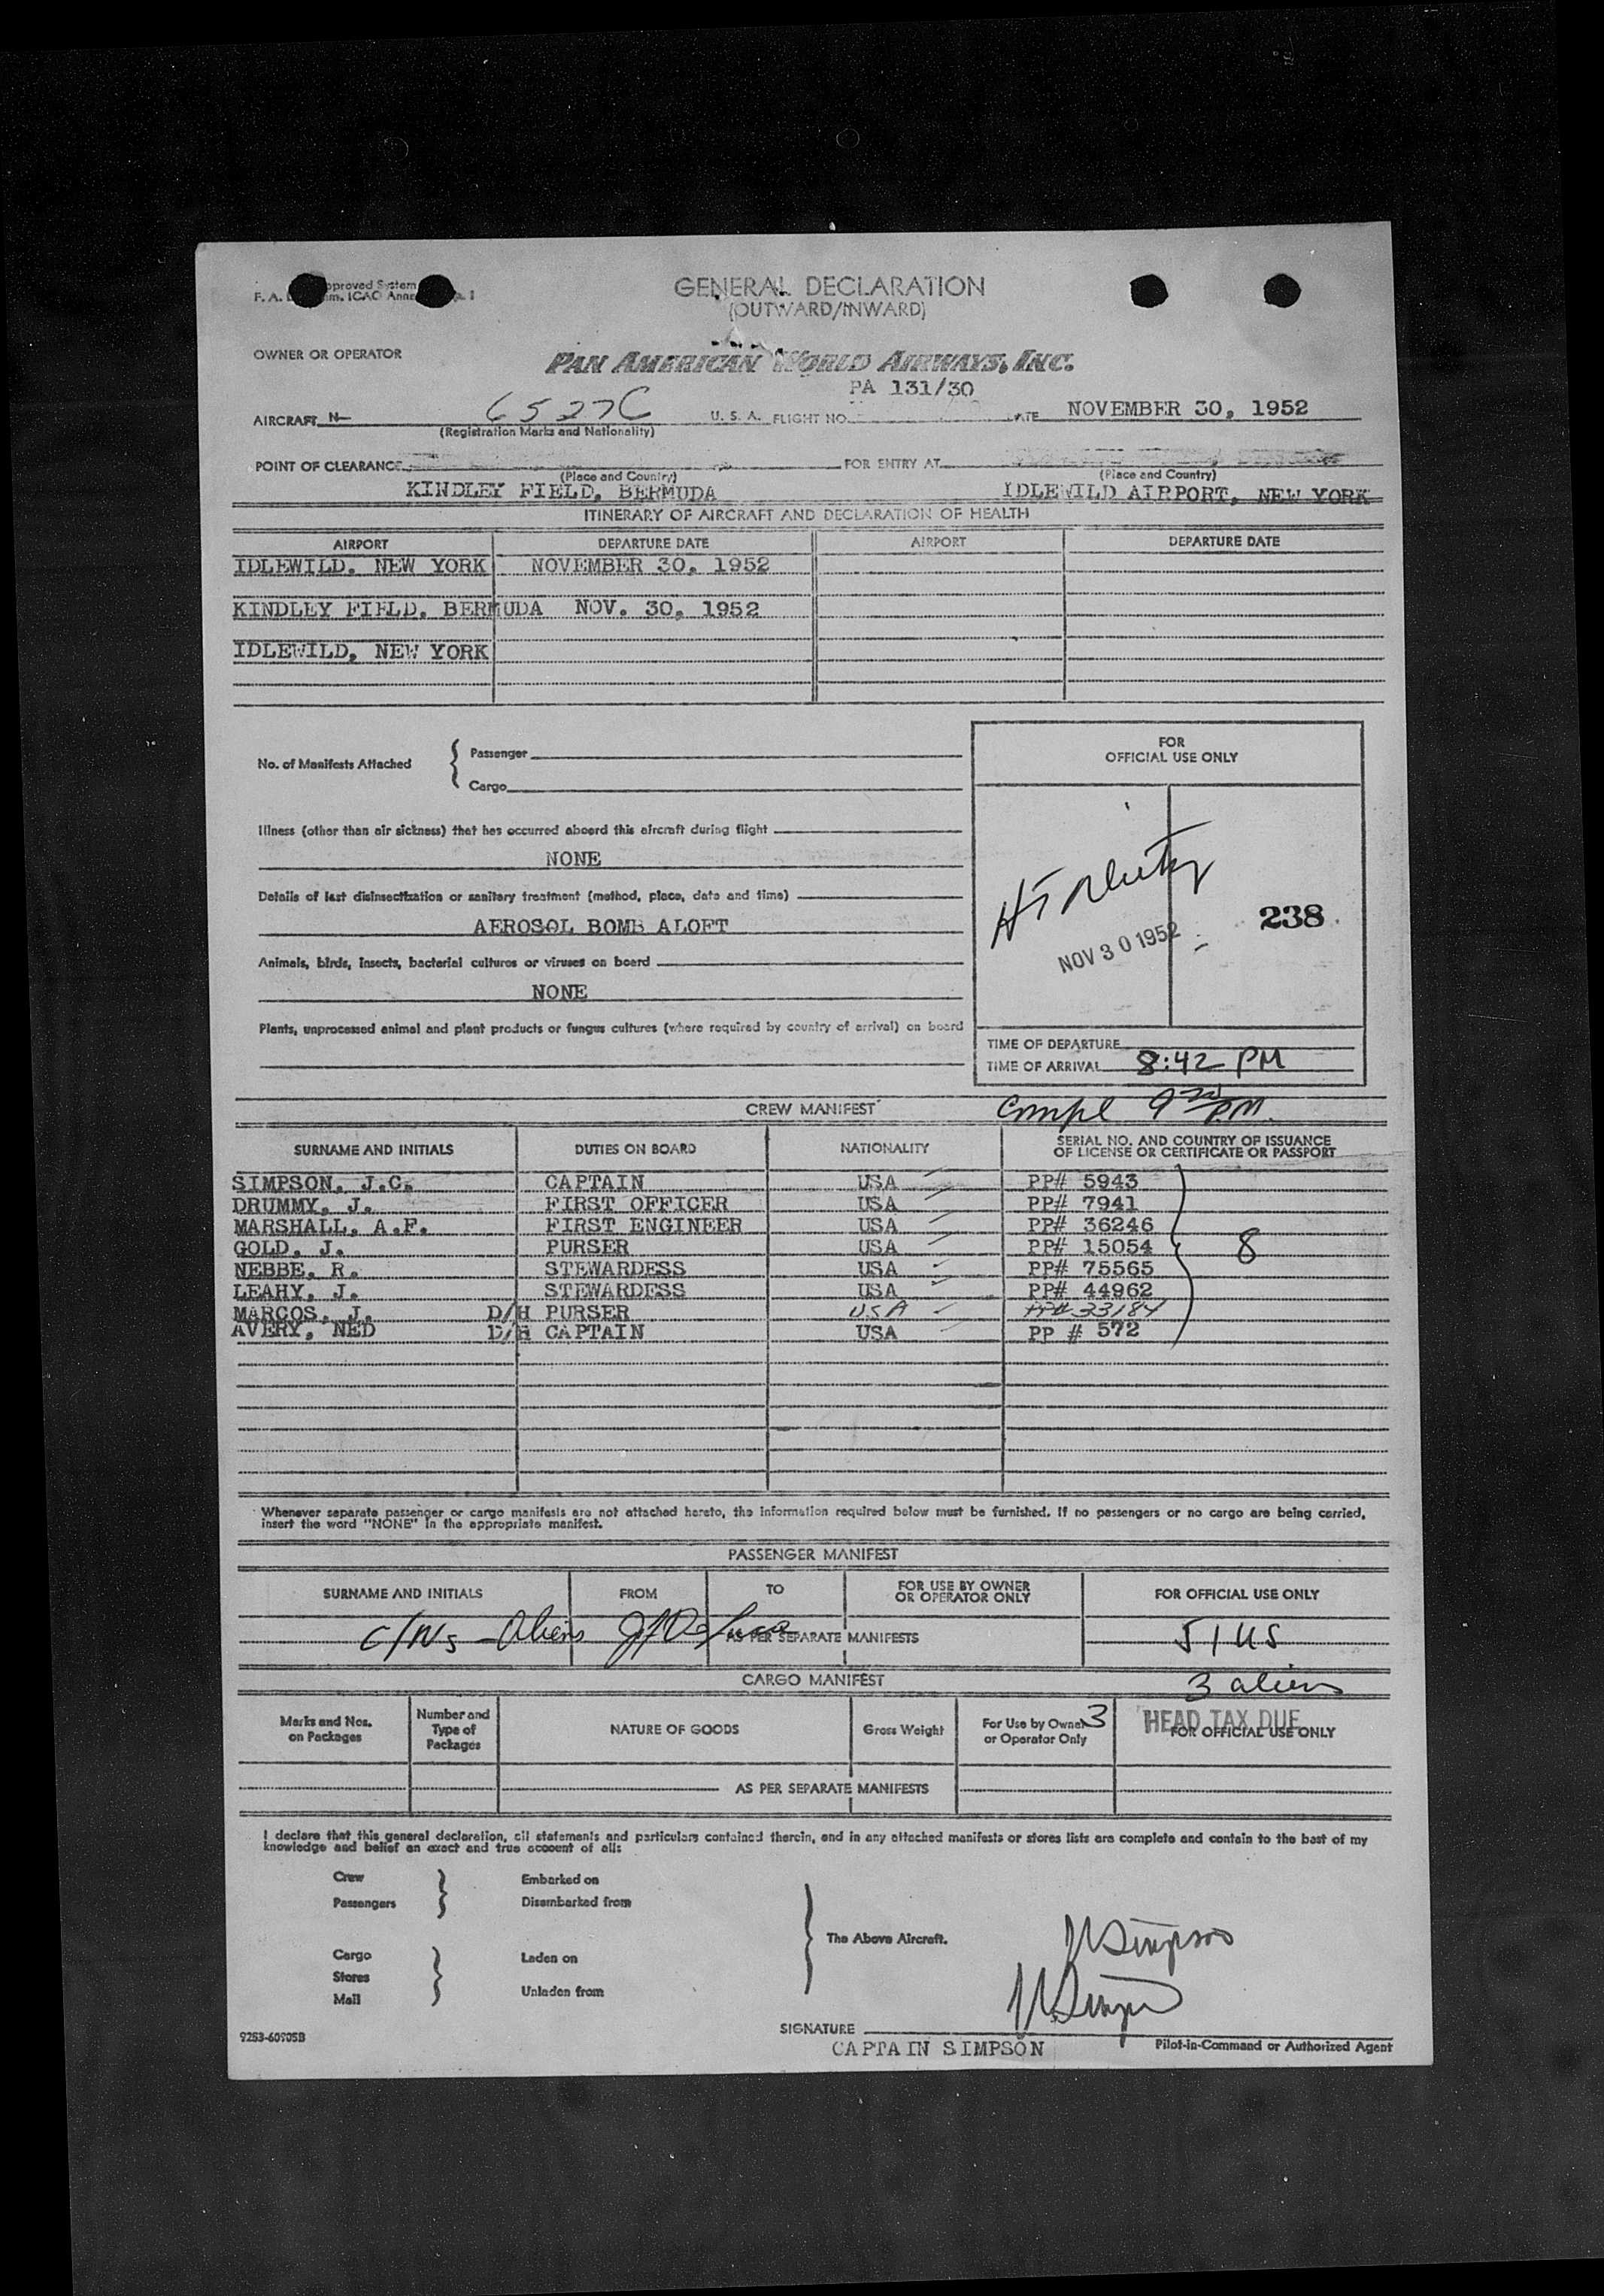 GENERAL DECLARATION
(OUTWARD/INWARD)
OWNER OR OPERATOR
PAN AMERICAN WORLD AIRWAYS, INC.
PA 131/30
AIRCRAFT N- 6527C U. S. A. FLIGHT NO. DATE NOVEMBER 30, 1952
(Registration Marks and Nationality)
POINT OF CLEARANCE FOR ENTRY AT
(Place and Country) (Place and Country)
KINDLEY FIELD, BERMUDA IDLEWILD AIRPORT, NEW YORK
ITINERARY OF AIRCRAFT AND DECLARATION OF HEALTH
AIRPORT DEPARTURE DATE AIRPORT DEPARTURE DATE
IDLEWILD, NEW YORK NOVEMBER 30, 1952
KINDLEY FIELD, BERMUDA NOV. 30, 1952
IDLEWILD, NEW YORK
No. of Manifests Attached { Passenger
Cargo
FOR
OFFICIAL USE ONLY
Illness (other than air sickness) that has occurred aboard this aircraft during flight
NONE
Details of last disinsectization or sanitary treatment (method, place, date and time)
AEROSOL BOMB ALOFT
NOV 30 1952
238
Animals, birds, insects, bacterial cultures or viruses on board
NONE
Plants, unprocessed animal and plant products or fungus cultures (where required by country of arrival) on board
TIME OF DEPARTURE
TIME OF ARRIVAL 8:42 PM
CREW MANIFEST Compl PM
SURNAME AND INITIALS DUTIES ON BOARD NATIONALITY SERIAL NO. AND COUNTRY OF ISSUANCE
OF LICENSE OR CERTIFICATE OR PASSPORT
SIMPSON, J.C. CAPTAIN USA PP# 5943
DRUMMY, J. FIRST OFFICER USA PP# 7941
MARSHALL, A.F. FIRST ENGINEER USA PP# 36246
GOLD, J. PURSER USA PP# 15054 8
NEBBE, R. STEWARDESS USA PP# 75565
LEAHY, J. STEWARDESS USA PP# 44962
MARCOS, J. D/H PURSER USA PP# 33184
AVERY, NED D/H CAPTAIN USA PP # 572
Whenever separate passenger or cargo manifests are not attached hereto, the information required below must be furnished. If no passengers or no cargo are being carried,
insert the word "NONE" in the appropriate manifest.
PASSENGER MANIFEST
SURNAME AND INITIALS FROM TO FOR USE BY OWNER
OR OPERATOR ONLY FOR OFFICIAL USE ONLY
Aliens AS PER SEPARATE MANIFESTS 51 US
CARGO MANIFEST 3 aliens
Marks and Nos.
on Packages Number and
Type of
Packages NATURE OF GOODS Gross Weight For Use by Owner
or Operator Only 3 HEAD TAX DUE
FOR OFFICIAL USE ONLY
AS PER SEPARATE MANIFESTS
I declare that this general declaration, all statements and particulars contained therein, and in any attached manifests or stores lists are complete and contain to the best of my
knowledge and belief an exact and true account of all:
Crew Embarked on
Passengers Disembarked from
The Above Aircraft. Simpson
Cargo Laden on
Stores
Mail Unladen from
SIGNATURE Simpson
CAPTAIN SIMPSON
Pilot-in-Command or Authorized Agent
9253-60905B